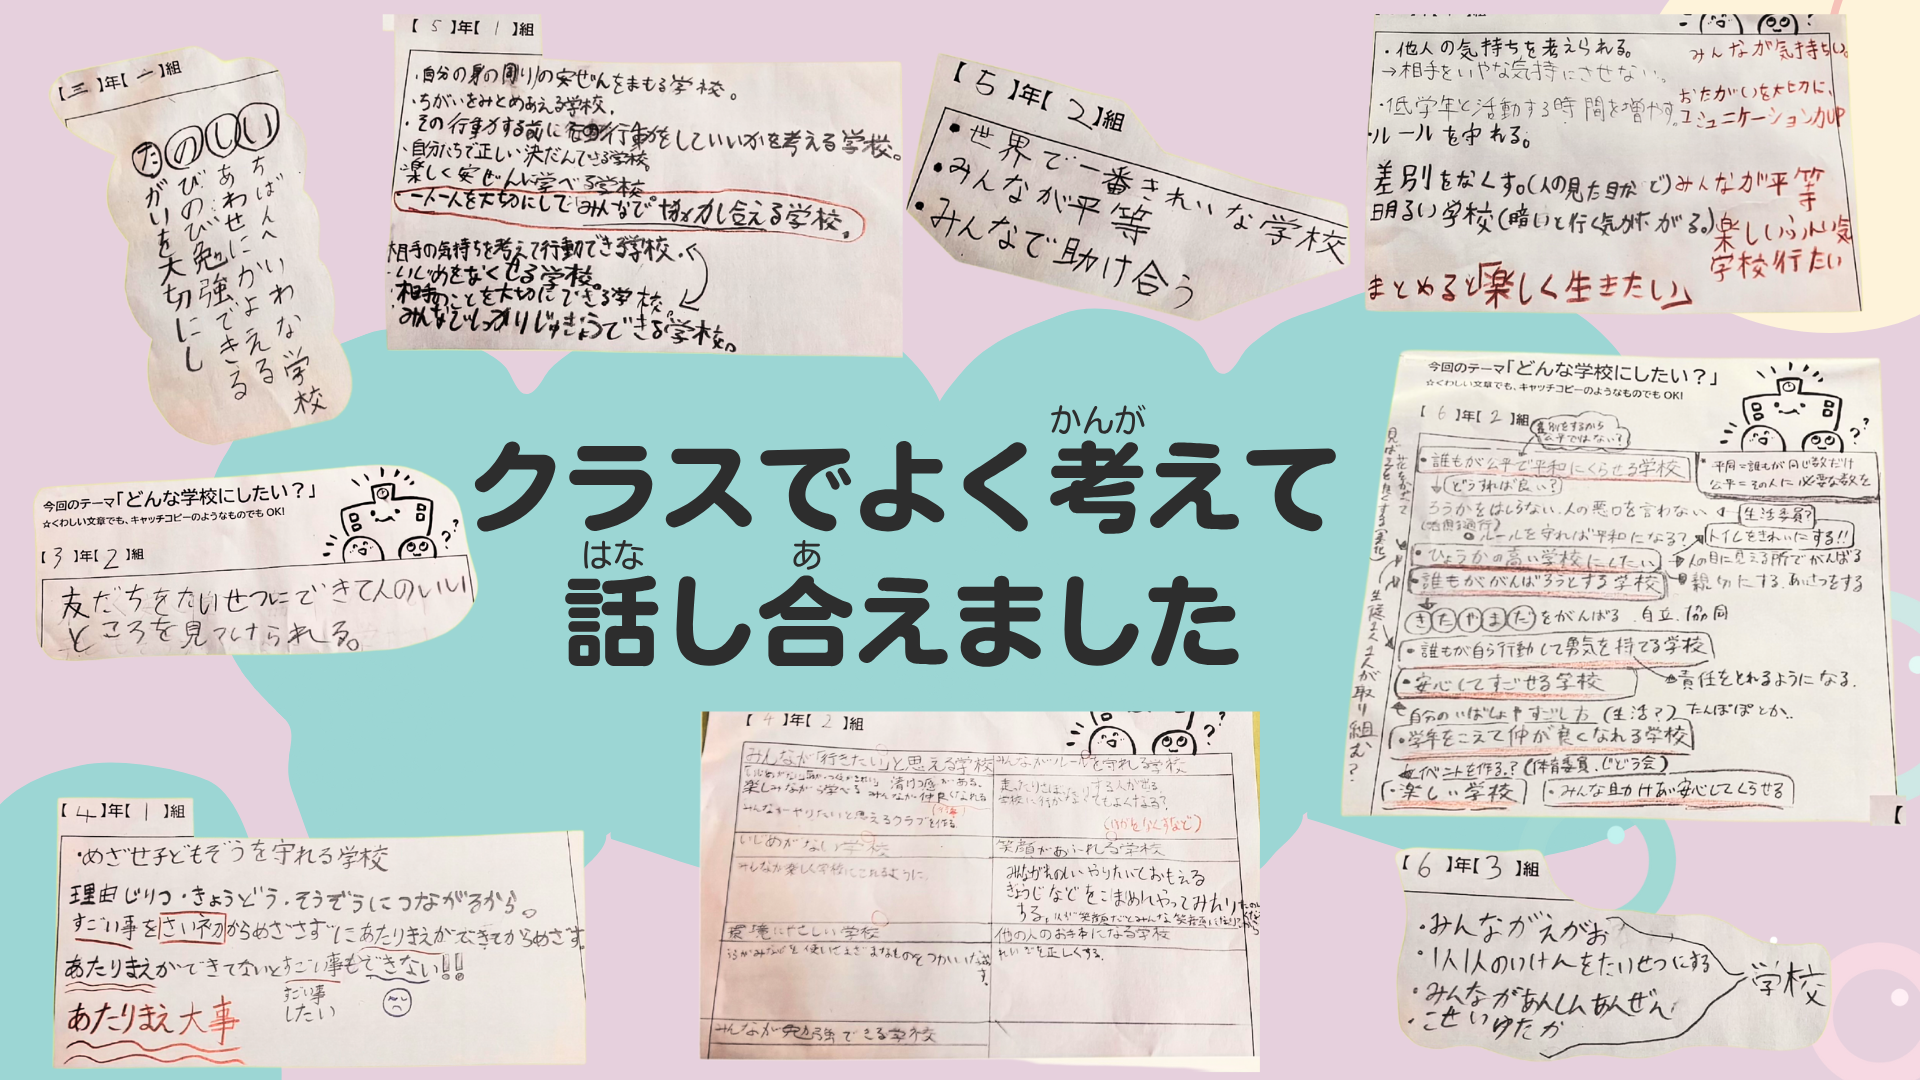 【三】年【一】組
たのしい
ちばんへいわな学校
あわせにかよえる
びのび勉強できる
がいを大切にし
【5】年【1】組
・自分の身の周りの安ぜんをまもる学校。
・ちがいをみとめあえる学校。
・その行動する前に行動をしていいかを考える学校。
・自分たちで正しい決だんできる学校。
・楽しく安ぜんに学べる学校
・一人一人を大切にしてみんなで協力し合える学校。
相手の気持ちを考えて行動できる学校。
・いじめをなくせる学校。
・相手のことを大切にできる学校。
・みんなでしっかりじゅぎょうできる学校。
【5】年【2】組
・世界で一番きれいな学校
・みんなが平等
・みんなで助け合う
・他人の気持ちを考えられる。
みんなが気持ちい。
→相手をいやな気持にさせない。
おたがいを大切に、
・低学年と活動する時間を増やす。
コミュニケーション力UP
・ルールを守れる。
差別をなくす。(人の見た目など)みんなが平等
明るい学校(暗いと行く気がなくなる。)
楽しいふん囲気
学校行たい
まとめると「楽しく生きたい」
クラスでよく考えて
かんが
話し合えました
はな
あ
今回のテーマ「どんな学校にしたい？」
☆くわしい文章でも、キャッチコピーのようなものでも OK!
【3】年【2】組
友だちをたいせつにできて人のいい
ところを見つけられる。
今回のテーマ「どんな学校にしたい？」
☆くわしい文章でも、キャッチコピーのようなものでも OK!
【6】年【2】組
差別をするから公平ではない？
・誰もが公平で平和にくらせる学校
・平同=誰もが同じ数だけ
公平=その人に必要な数を
どうすれば良い？
ろうかをはしらない、人の悪口を言わない
生活委員？
ルールを守れば平和になる？
トイレをきれいにする!!
・ひょうかの高い学校にしたい
人の目に見える所でがんばる
・誰もががんばろうとする学校
親切にする、あいさつをする
きたやまだをがんばる 自立、協同
・誰もが自ら行動して勇気を持てる学校
責任をとれるようになる。
・安心してすごせる学校
自分のいばしょやすごし方(生活？)たんぽぽとか..
・学年をこえて仲が良くなれる学校
イベントを作る？(体育委員、じどう会)
・楽しい学校
・みんな助けあい安心してくらせる
生徒1人1人が取り組む？
【4】年【1】組
・めざせ子どもぞうを守れる学校
理由じりつ・きょうどう・そうぞうにつながるから。
すごい事をさいネカからめざさずにあたりまえができてからめざす。
あたりまえができてないとすごい事もできない!!
すごい事
したい
あたりまえ大事
【4】年【2】組
みんなが「行きたい」と思える学校
みんながルールを守れる学校
楽しみながら学べる みんなが仲良くなれる
みんながやりたいと思えるクラブを作る。
いじめがない学校
笑顔があふれる学校
みんなが楽しく学校にこれるように。
環境にやさしい学校
他の人のお手本になる学校
みんなが勉強できる学校
【6】年【3】組
・みんながえがお
・1人1人のいけんをたいせつにする
・みんながあんしんあんぜん
・こせいゆたか
学校